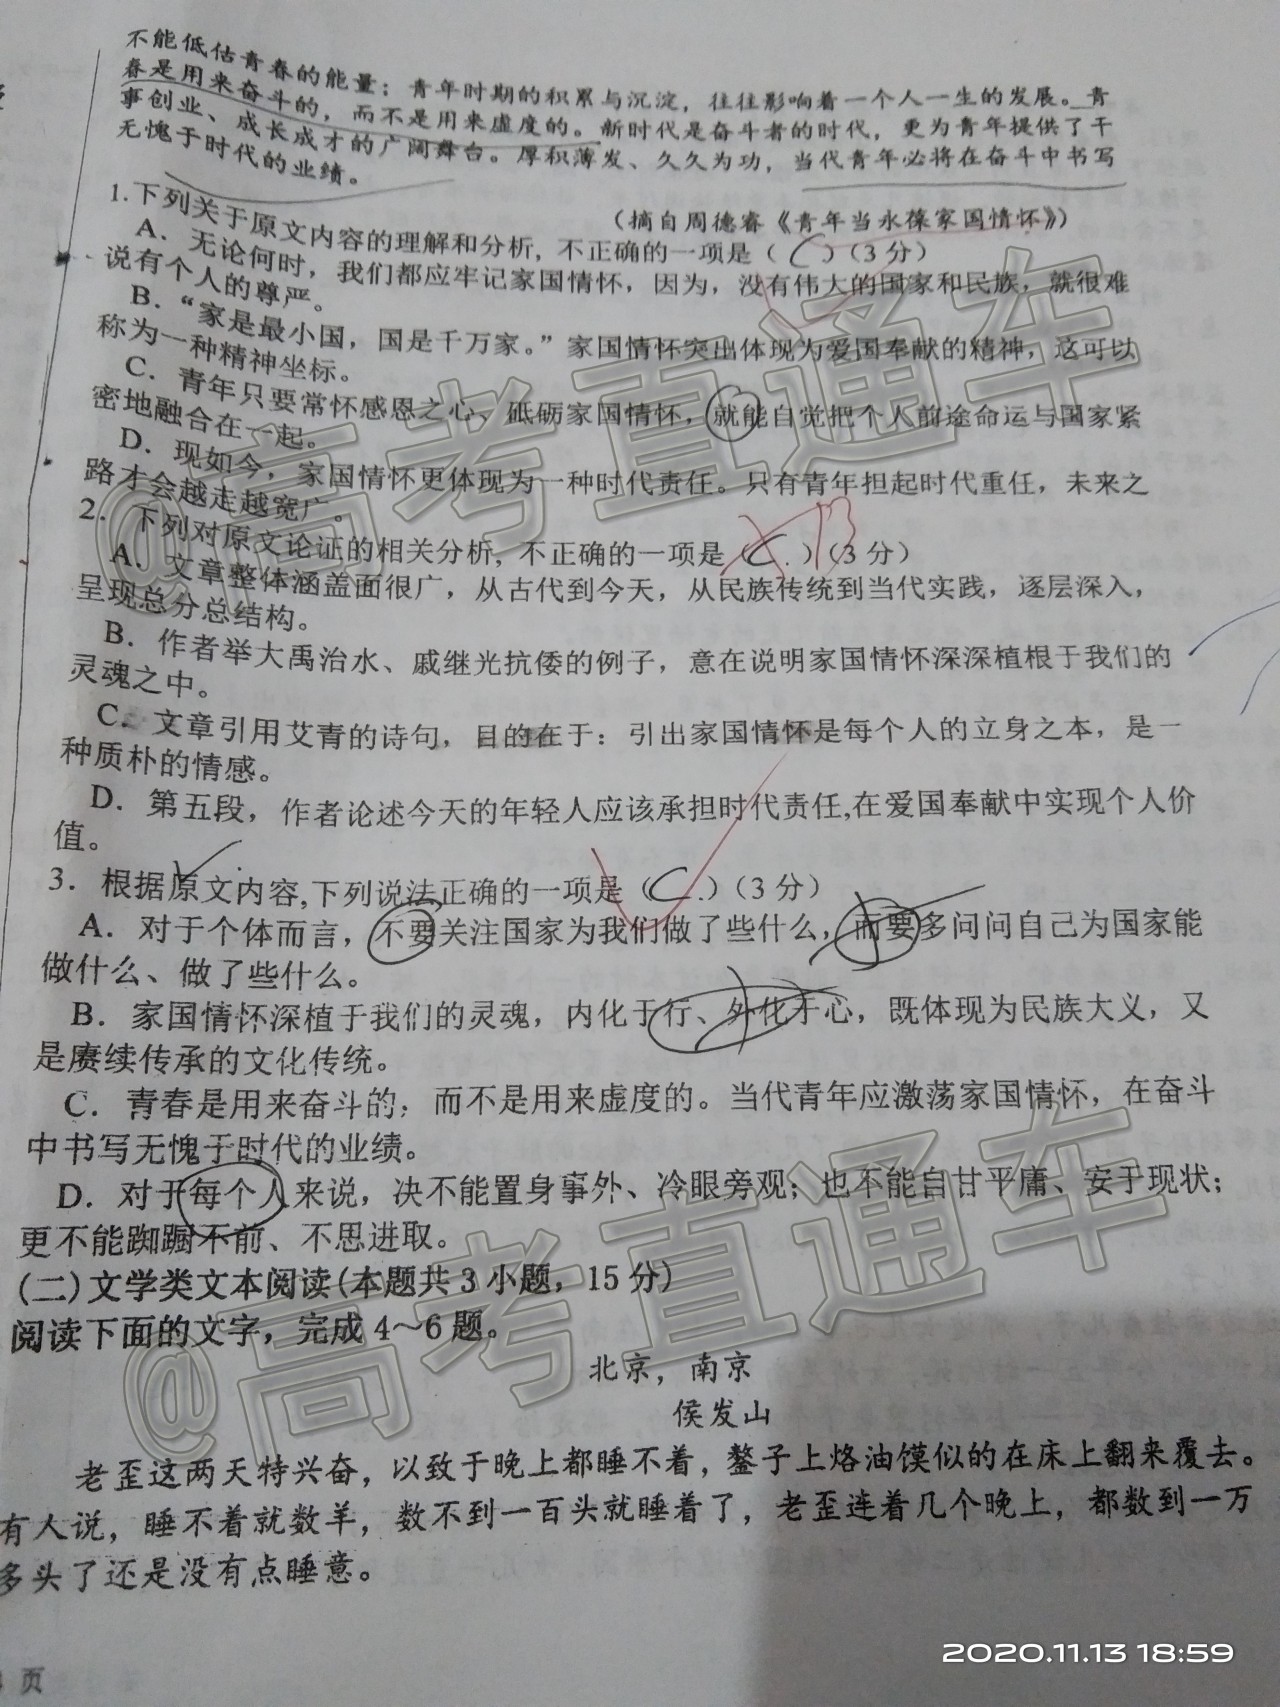 不能低估青春的能量；青年时期的积累与沉淀，往往影响着一个人一生的发展。青
春是用来奋斗的，而不是用来虚度的。新时代是奋斗者的时代，更为青年提供了干
事创业、成长成才的广阔舞台。厚积薄发、久久为功，当代青年必将在奋斗中书写
无愧于时代的业绩。
（摘自周德睿《青年当永葆家国情怀》）
1.下列关于原文内容的理解和分析，不正确的一项是（ C ）（3 分）
A．无论何时，我们都应牢记家国情怀，因为，没有伟大的国家和民族，就很难
说有个人的尊严。
B．“家是最小国，国是千万家。”家国情怀突出体现为爱国奉献的精神，这可以
称为一种精神坐标。
C．青年只要常怀感恩之心、砥砺家国情怀，就能自觉把个人前途命运与国家紧
密地融合在一起。
D．现如今，家国情怀更体现为一种时代责任。只有青年担起时代重任，未来之
路才会越走越宽广。
2．下列对原文论证的相关分析，不正确的一项是（ C ）B（3 分）
A．文章整体涵盖面很广，从古代到今天，从民族传统到当代实践，逐层深入，
呈现总分总结构。
B．作者举大禹治水、戚继光抗倭的例子，意在说明家国情怀深深植根于我们的
灵魂之中。
C．文章引用艾青的诗句，目的在于：引出家国情怀是每个人的立身之本，是一
种质朴的情感。
D．第五段，作者论述今天的年轻人应该承担时代责任,在爱国奉献中实现个人价
值。
3．根据原文内容,下列说法正确的一项是（ C ）（3 分）
A．对于个体而言，不要关注国家为我们做了些什么，而要多问问自己为国家能
做什么、做了些什么。
B．家国情怀深植于我们的灵魂，内化于行、外化于心，既体现为民族大义，又
是赓续传承的文化传统。
C．青春是用来奋斗的，而不是用来虚度的。当代青年应激荡家国情怀，在奋斗
中书写无愧于时代的业绩。
D．对于每个人来说，决不能置身事外、冷眼旁观；也不能自甘平庸、安于现状；
更不能踟蹰不前、不思进取。
(二)文学类文本阅读(本题共 3 小题，15 分)
阅读下面的文字，完成 4～6 题。
北京，南京
侯发山
老歪这两天特兴奋，以致于晚上都睡不着，鏊子上烙油馍似的在床上翻来覆去。
有人说，睡不着就数羊，数不到一百头就睡着了，老歪连着几个晚上，都数到一万
多头了还是没有点睡意。
页
@高考直通车
@高考直通车
2020.11.13 18:59